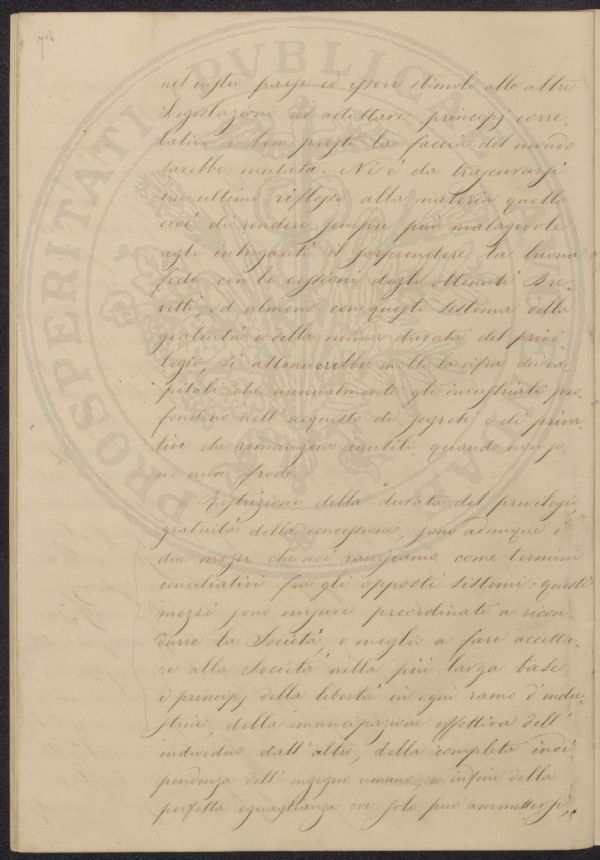 nel nostro paese ed essere stimolo alle altre
Legislazioni ad adottare principj corre-
lativi e ben presto la faccia del mondo
sarebbe mutata. Nè è da trascurarsi
un ultimo riflesso alla materia quello
cioè di rendere sempre più malagevole
agli intriganti il sorprendere la buona
fede con le cessioni degli ottenuti Bre-
vetti, ed almeno con questo sistema della
gratuità e della minor durata del privi-
legio, si attenuerebbe molto la cifra dei ca-
pitali che annualmente gli industriali pro-
fondono nell'acquisto di segreti e di priva-
tive che rimangono inutili quando non so-
no una frode.
Restrizione della durata del privilegio
gratuità della concessione, sono adunque i
due mezzi che noi ravvisiamo come termini
conciliativi fra gli opposti sistemi: questi
mezzi sono misure preordinate a ricon-
durre la Società, o meglio a fare accetta-
re alla Società nella più larga base
i principj della libertà in ogni ramo d'indu-
stria, della emancipazione effettiva dell'
individuo dall'altro, della completa indi-
pendenza dell'ingegno umano, e infine della
perfetta eguaglianza ove solo può ammettersi,
PROSPERITATI PVBLICAE